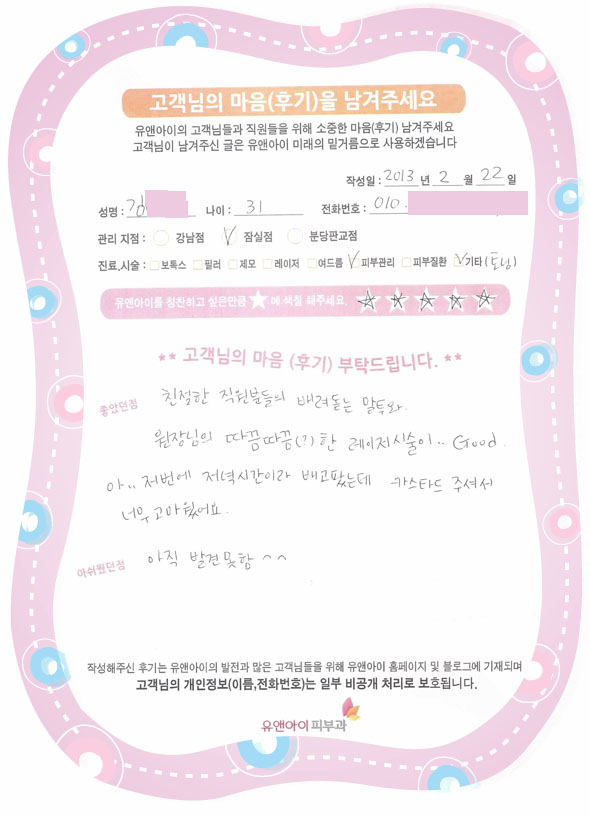 고객님의 마음(후기)을 남겨주세요
유앤아이의 고객님들과 직원들을 위해 소중한 마음(후기) 남겨주세요
고객님이 남겨주신 글은 유앤아이 미래의 밑거름으로 사용하겠습니다
작성일 : 2013 년 2 월 22 일
성명 : 나이 : 31 전화번호 : 010.
관리 지점 : 강남점 잠실점 분당판교점
진료,시술 : 보톡스 필러 제모 레이저 여드름 피부관리 피부질환 기타(토닝)
유앤아이를 칭찬하고 싶은만큼 ★ 에 색칠 해주세요.
** 고객님의 마음 (후기) 부탁드립니다. **
좋았던점 친절한 직원분들의 배려돋는 말투와.
원장님의 따끔따끔(?)한 레이저시술이.. Good.
아.. 저번에 저녁시간이라 배고팠는데 카스타드 주셔서
너무 고마웠어요.
아쉬웠던점 아직 발견못함 ^^
작성해주신 후기는 유앤아이의 발전과 많은 고객님들을 위해 유앤아이 홈페이지 및 블로그에 기재되며
고객님의 개인정보(이름,전화번호)는 일부 비공개 처리로 보호됩니다.
유앤아이피부과